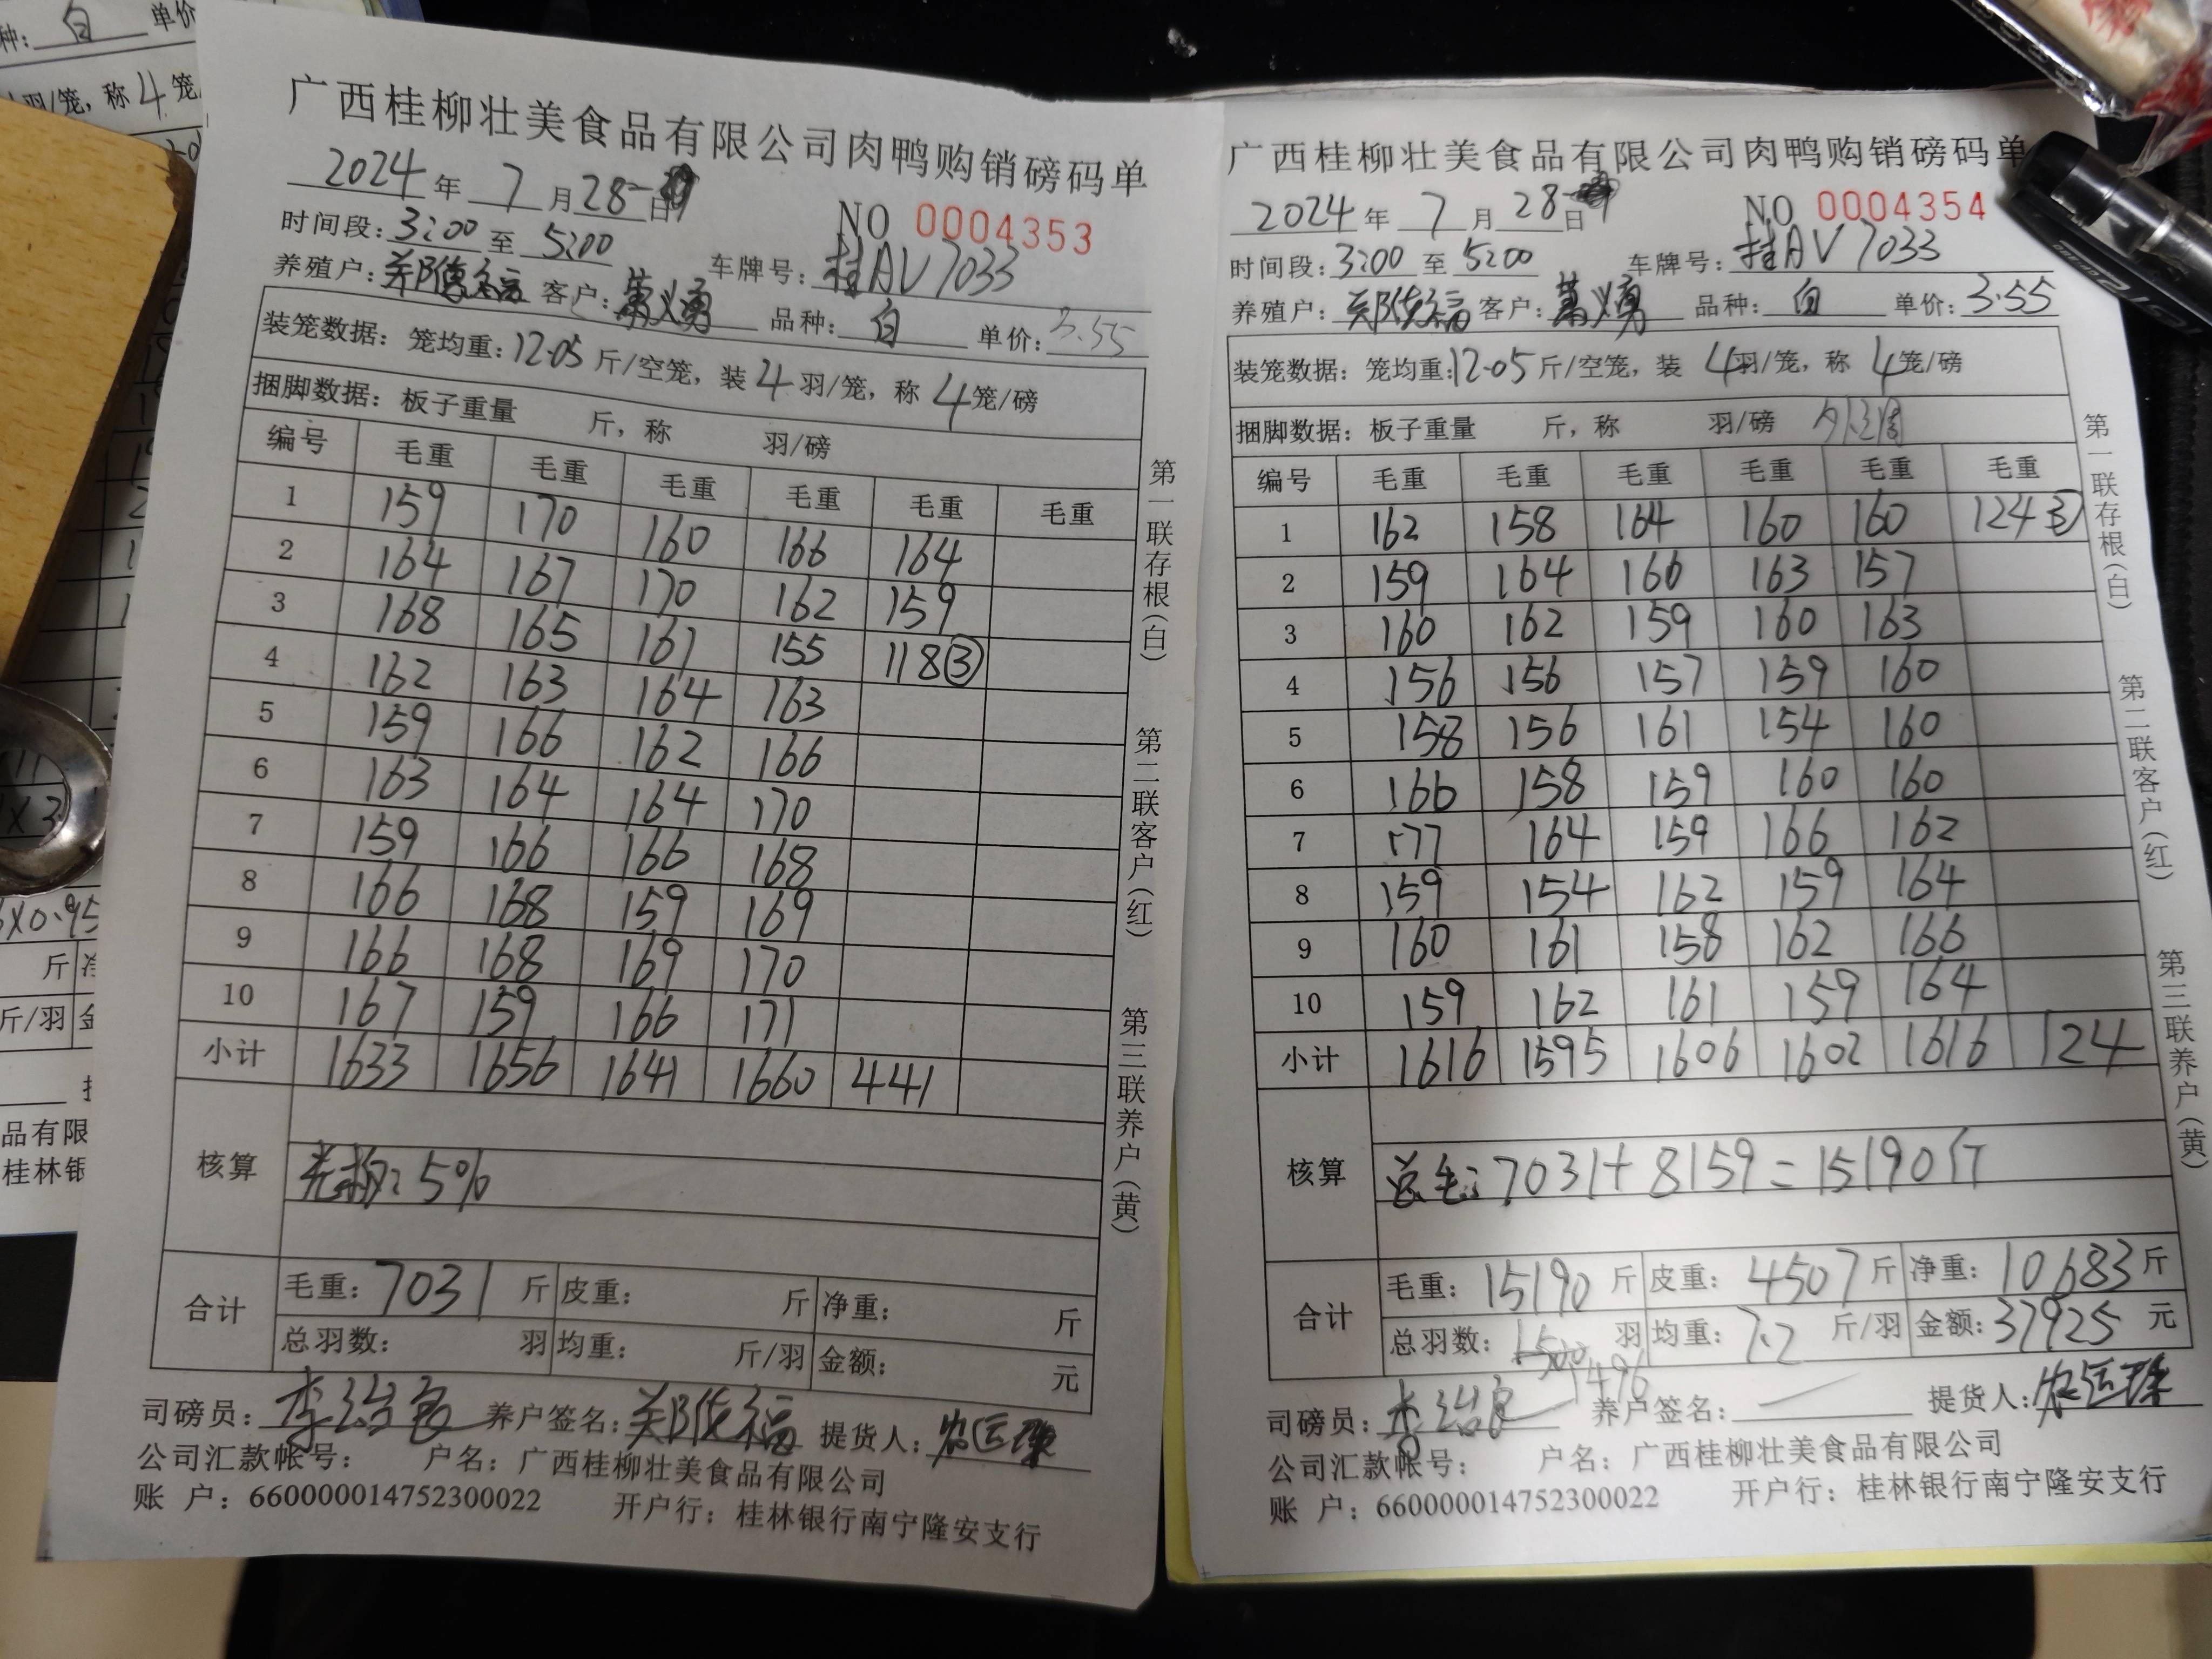 广西桂柳壮美食品有限公司肉鸭购销磅码单
2024年 7月28日
NO 0004353
时间段:3:00 至 5:00 车牌号:桂AV7033
养殖户:郑德福 客户: 品种:白 单价:3.55
装笼数据:笼均重:12.05斤/空笼,装4羽/笼,称4笼/磅
捆脚数据:板子重量 斤,称 羽/磅
编号 毛重 毛重 毛重 毛重 毛重 毛重
1 159 170 160 166 164
2 164 167 170 162 159
3 168 165 161 155 118③
4 162 163 164 163
5 159 166 162 166
6 163 164 164 170
7 159 166 166 168
8 166 168 159 169
9 166 168 169 170
10 167 159 166 171
小计 1633 1656 1641 1660 441
核算
5%
合计 毛重:7031斤 皮重: 斤 净重: 斤
总羽数: 羽 均重: 斤/羽 金额: 元
司磅员:李治良 养户签名:郑德福 提货人:
公司汇款帐号: 户名:广西桂柳壮美食品有限公司
账 户:660000014752300022 开户行:桂林银行南宁隆安支行
第一联存根(白) 第二联客户(红) 第三联养户(黄)
广西桂柳壮美食品有限公司肉鸭购销磅码单
2024年 7月28日
NO 0004354
时间段:3:00 至 5:00 车牌号:桂AV7033
养殖户:郑德福 客户: 品种:白 单价:3.55
装笼数据:笼均重:12.05斤/空笼,装 4羽/笼,称 4笼/磅
捆脚数据:板子重量 斤,称 羽/磅
编号 毛重 毛重 毛重 毛重 毛重 毛重
1 162 158 164 160 160 124③
2 159 164 166 163 157
3 160 162 159 160 163
4 156 156 157 159 160
5 158 156 161 154 160
6 166 158 159 160 160
7 177 164 159 166 162
8 159 154 162 159 164
9 160 161 158 162 166
10 159 162 161 159 164
小计 1616 1595 1606 1602 1616 124
核算
总毛:7031+8159=15190斤
合计 毛重:15190斤 皮重:4507斤 净重:10683斤
总羽数:1500羽 均重:7.2斤/羽 金额:37925元
1496
司磅员:李治良 养户签名: 提货人:
公司汇款帐号: 户名:广西桂柳壮美食品有限公司
账 户:660000014752300022 开户行:桂林银行南宁隆安支行
第一联存根(白) 第二联客户(红) 第三联养户(黄)